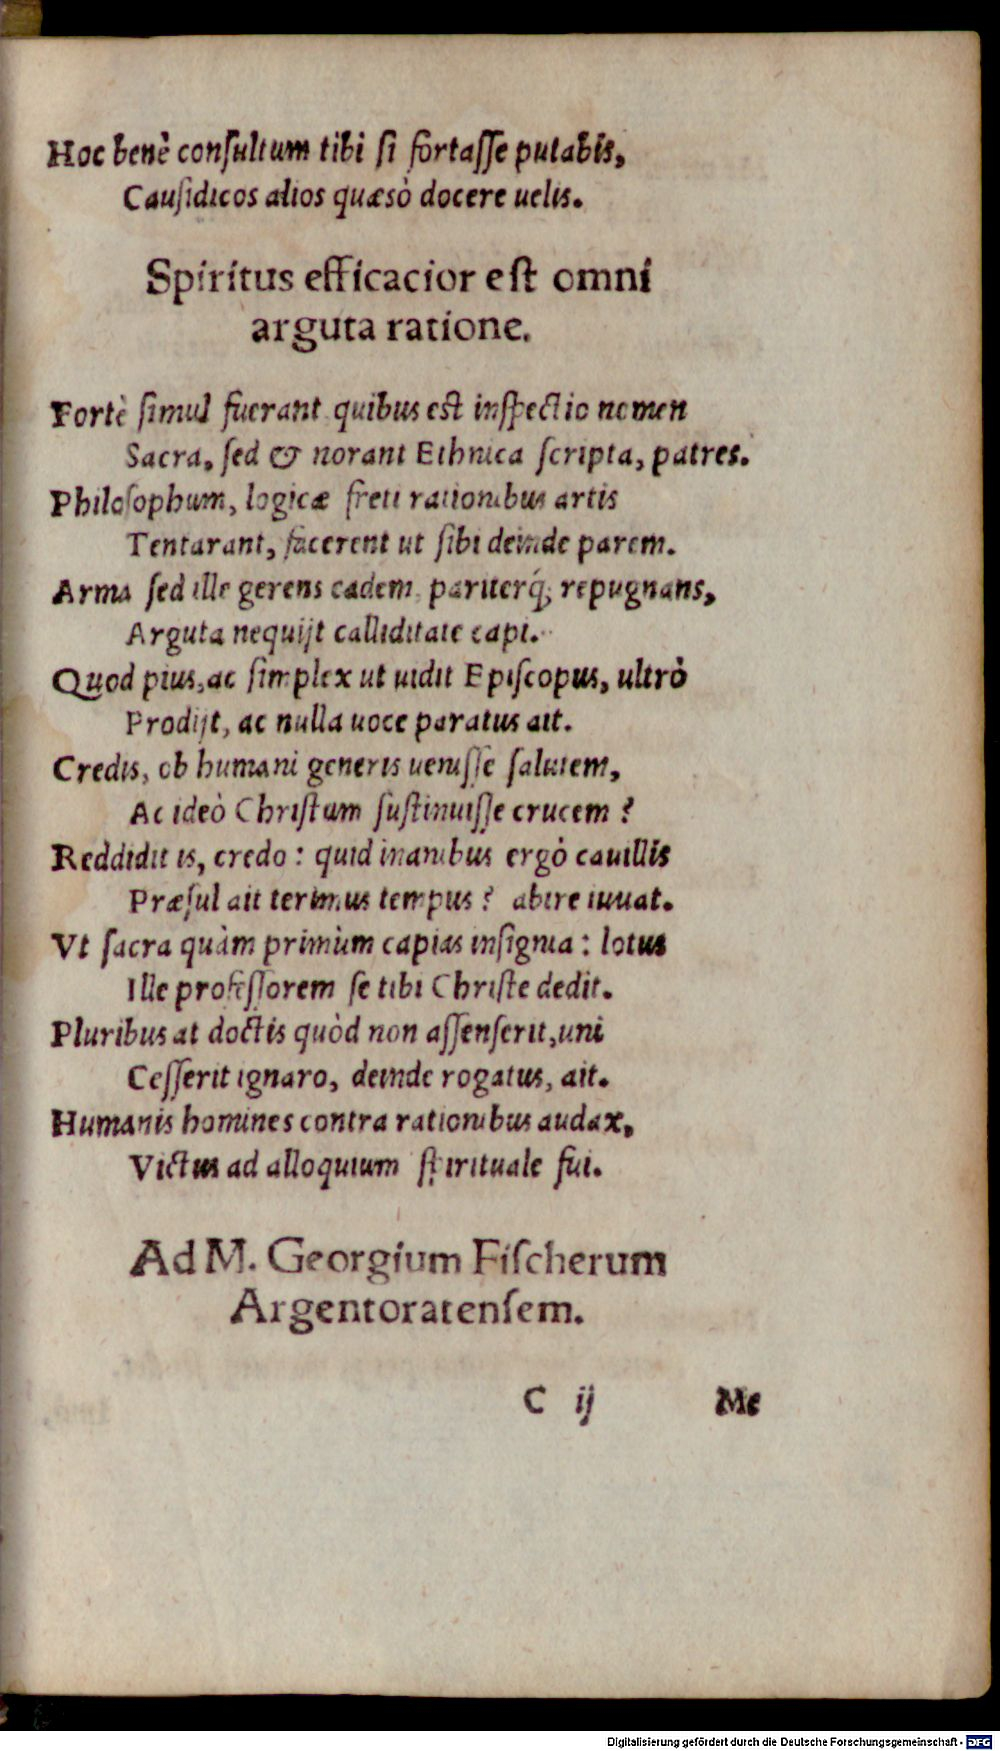 Hoc benè consultum tibi si fortasse putabis,
Causidicos alios quæsò docere uelis.
Spiritus efficacior est omni
arguta ratione.
Fortè simul fuerant quibus est inspectio nomen
Sacra, sed & norant Ethnica scripta, patres.
Philosophum, logicæ freti rationibus artis
Tentarant, facerent ut sibi deinde parem.
Arma sed ille gerens eadem, pariterq́; repugnans,
Arguta nequijt calliditate capi.
Quod pius, ac simplex ut uidit Episcopus, ultrò
Prodijt, ac nulla uoce paratus ait.
Credis, ob humani generis uenisse salutem,
Ac ideò Christum sustinuisse crucem?
Reddidit is, credo: quid inanibus ergò cauillis
Præsul ait terimus tempus? abire iuuat.
Vt sacra quàm primùm capias insignia: lotus
Ille professorem se tibi Christe dedit.
Pluribus at doctis quòd non assenserit, uni
Cesserit ignaro, deinde rogatus, ait.
Humanis homines contra rationibus audax,
Victus ad alloquium spirituale fui.
Ad M. Georgium Fischerum
Argentoratensem.
C ij Me
Digitalisierung gefördert durch die Deutsche Forschungsgemeinschaft - DFG